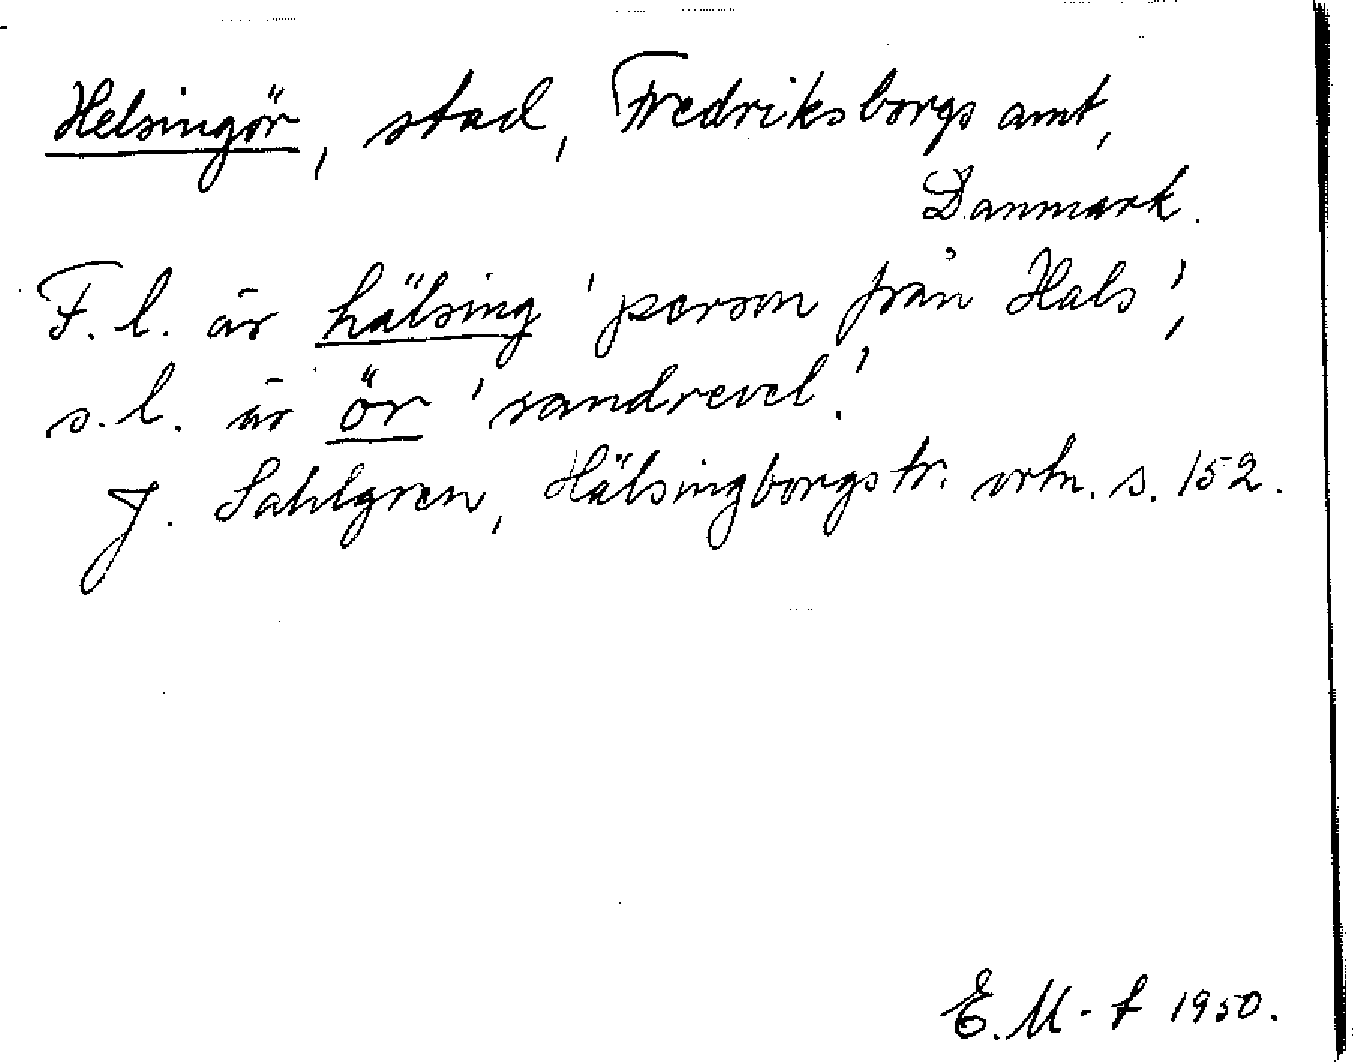 Helsingör, stad, Fredriksborgs amt,
Danmark.
F.l. är hälsing 'person från Hals',
s.l. är ör 'sandrevel'.
J. Sahlgren, Hälsingborgstr. ortn. s. 152.
E.M-f 1950.